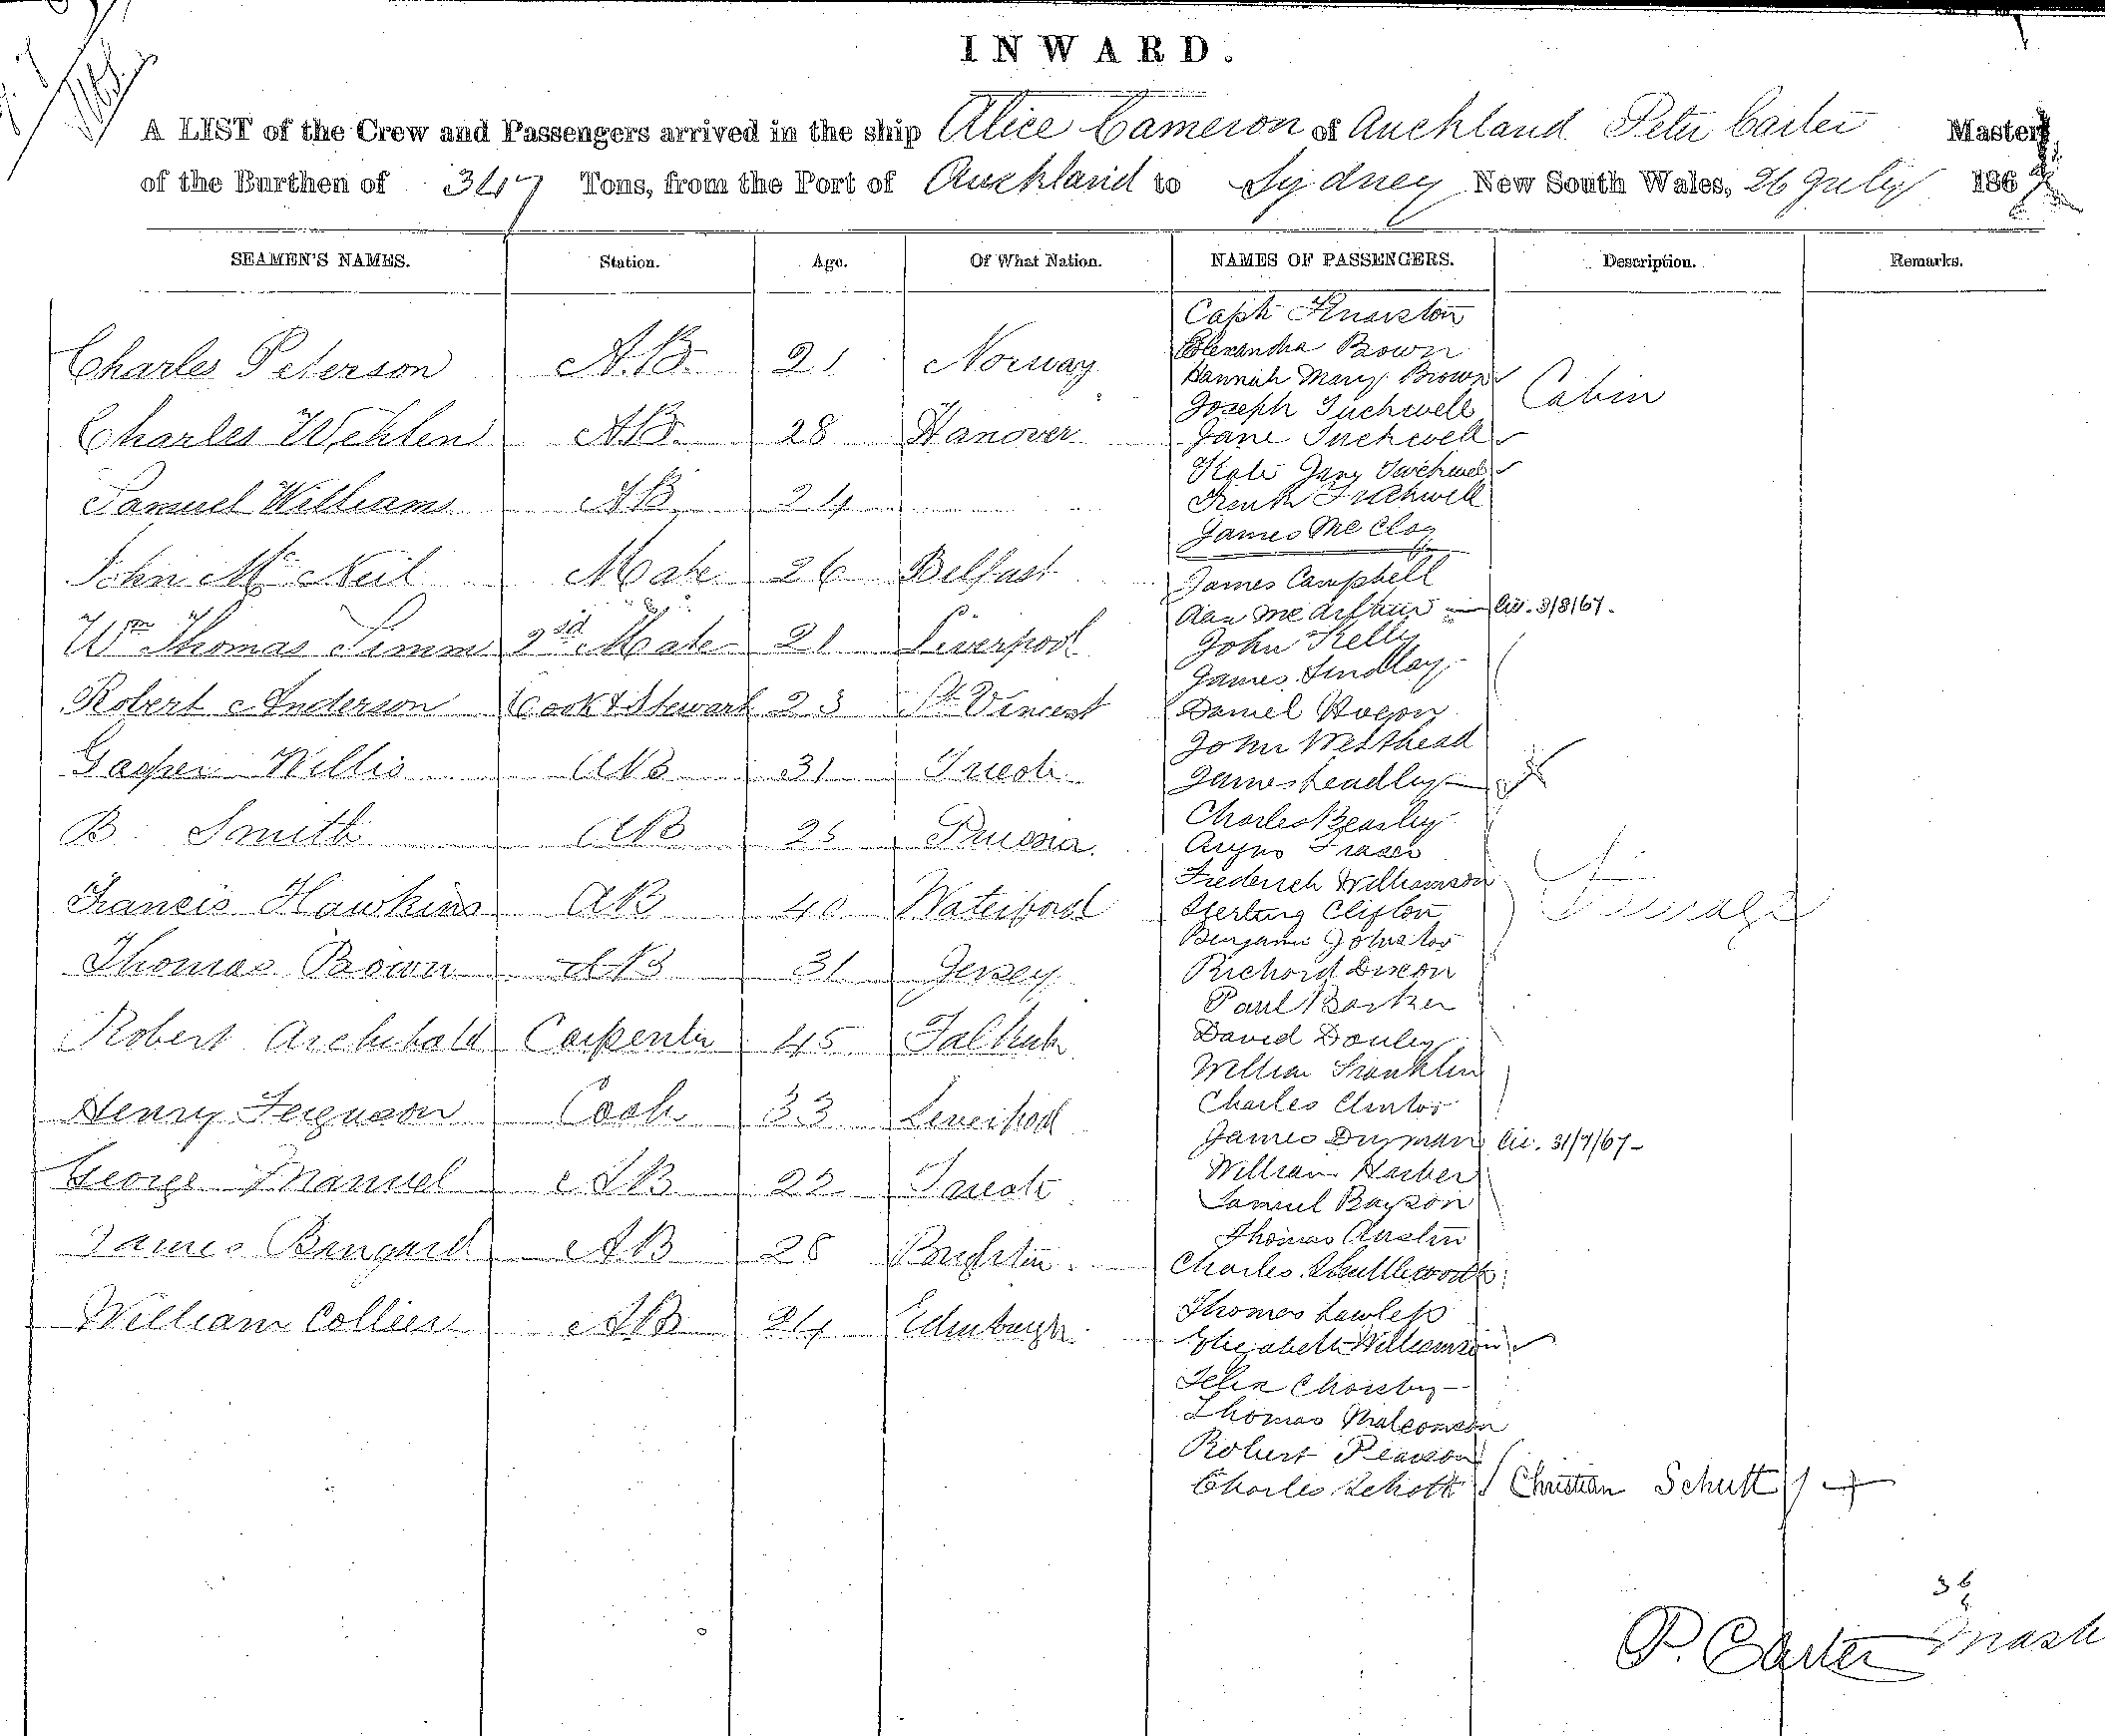 INWARD.
A LIST of the Crew and Passengers arrived in the ship Alice Cameron of Auckland Peter Carter Master
of the Burthen of 347 Tons, from the Port of Auckland to Sydney New South Wales, 26 July 186
SEAMEN'S NAMES. Station. Age. Of What Nation. NAMES OF PASSENGERS. Description. Remarks.
Capt
Brown
Charles Peterson A.B. 21 Norway
Hannah Mary Brown Cabin
Joseph Tuckwell
Charles Wehlen AB. 28 Hanover
Jane Tuckwell
Kate Tuckwell
Samuel Williams AB 24
Tuckwell
James McCloy
John McNeil Mate 26 Belfast
James Campbell
McArthur 3/8/67.
Wm Thomas Simm 2nd Mate 21 Liverpool
John Kelly
James Findlay
Robert Anderson Cook & Steward 23 St Vincent
Daniel Hogon
John Westhead
Gasper Willis AB 31
James Leadley
Charles Beasley
B. Smith AB 25 Prussia.
Fraser
Frederick Williamson
Francis Hawkins AB 40 Waterford
Sterling Clifton
Benjamin Johnston
Thomas Brown AB 31 Jersey
Richard Dixon
Paul Barker
Robert Archibald Carpenter 45 Falkirk
David
William Franklin
Henry Ferguson Cook 33 Liverpool
Charles
James 31/7/67
George Manuel AB 22
William Harber
Samuel
James AB 28 Brighton.
Thomas Austin
Charles Shuttlewood
William Collier AB 24 Edinburgh
Thomas Lawless
Elizabeth Williamson
Thomas Malcomson
Robert Pearson
Charles Schott Christian Schutt
36
P. Carter